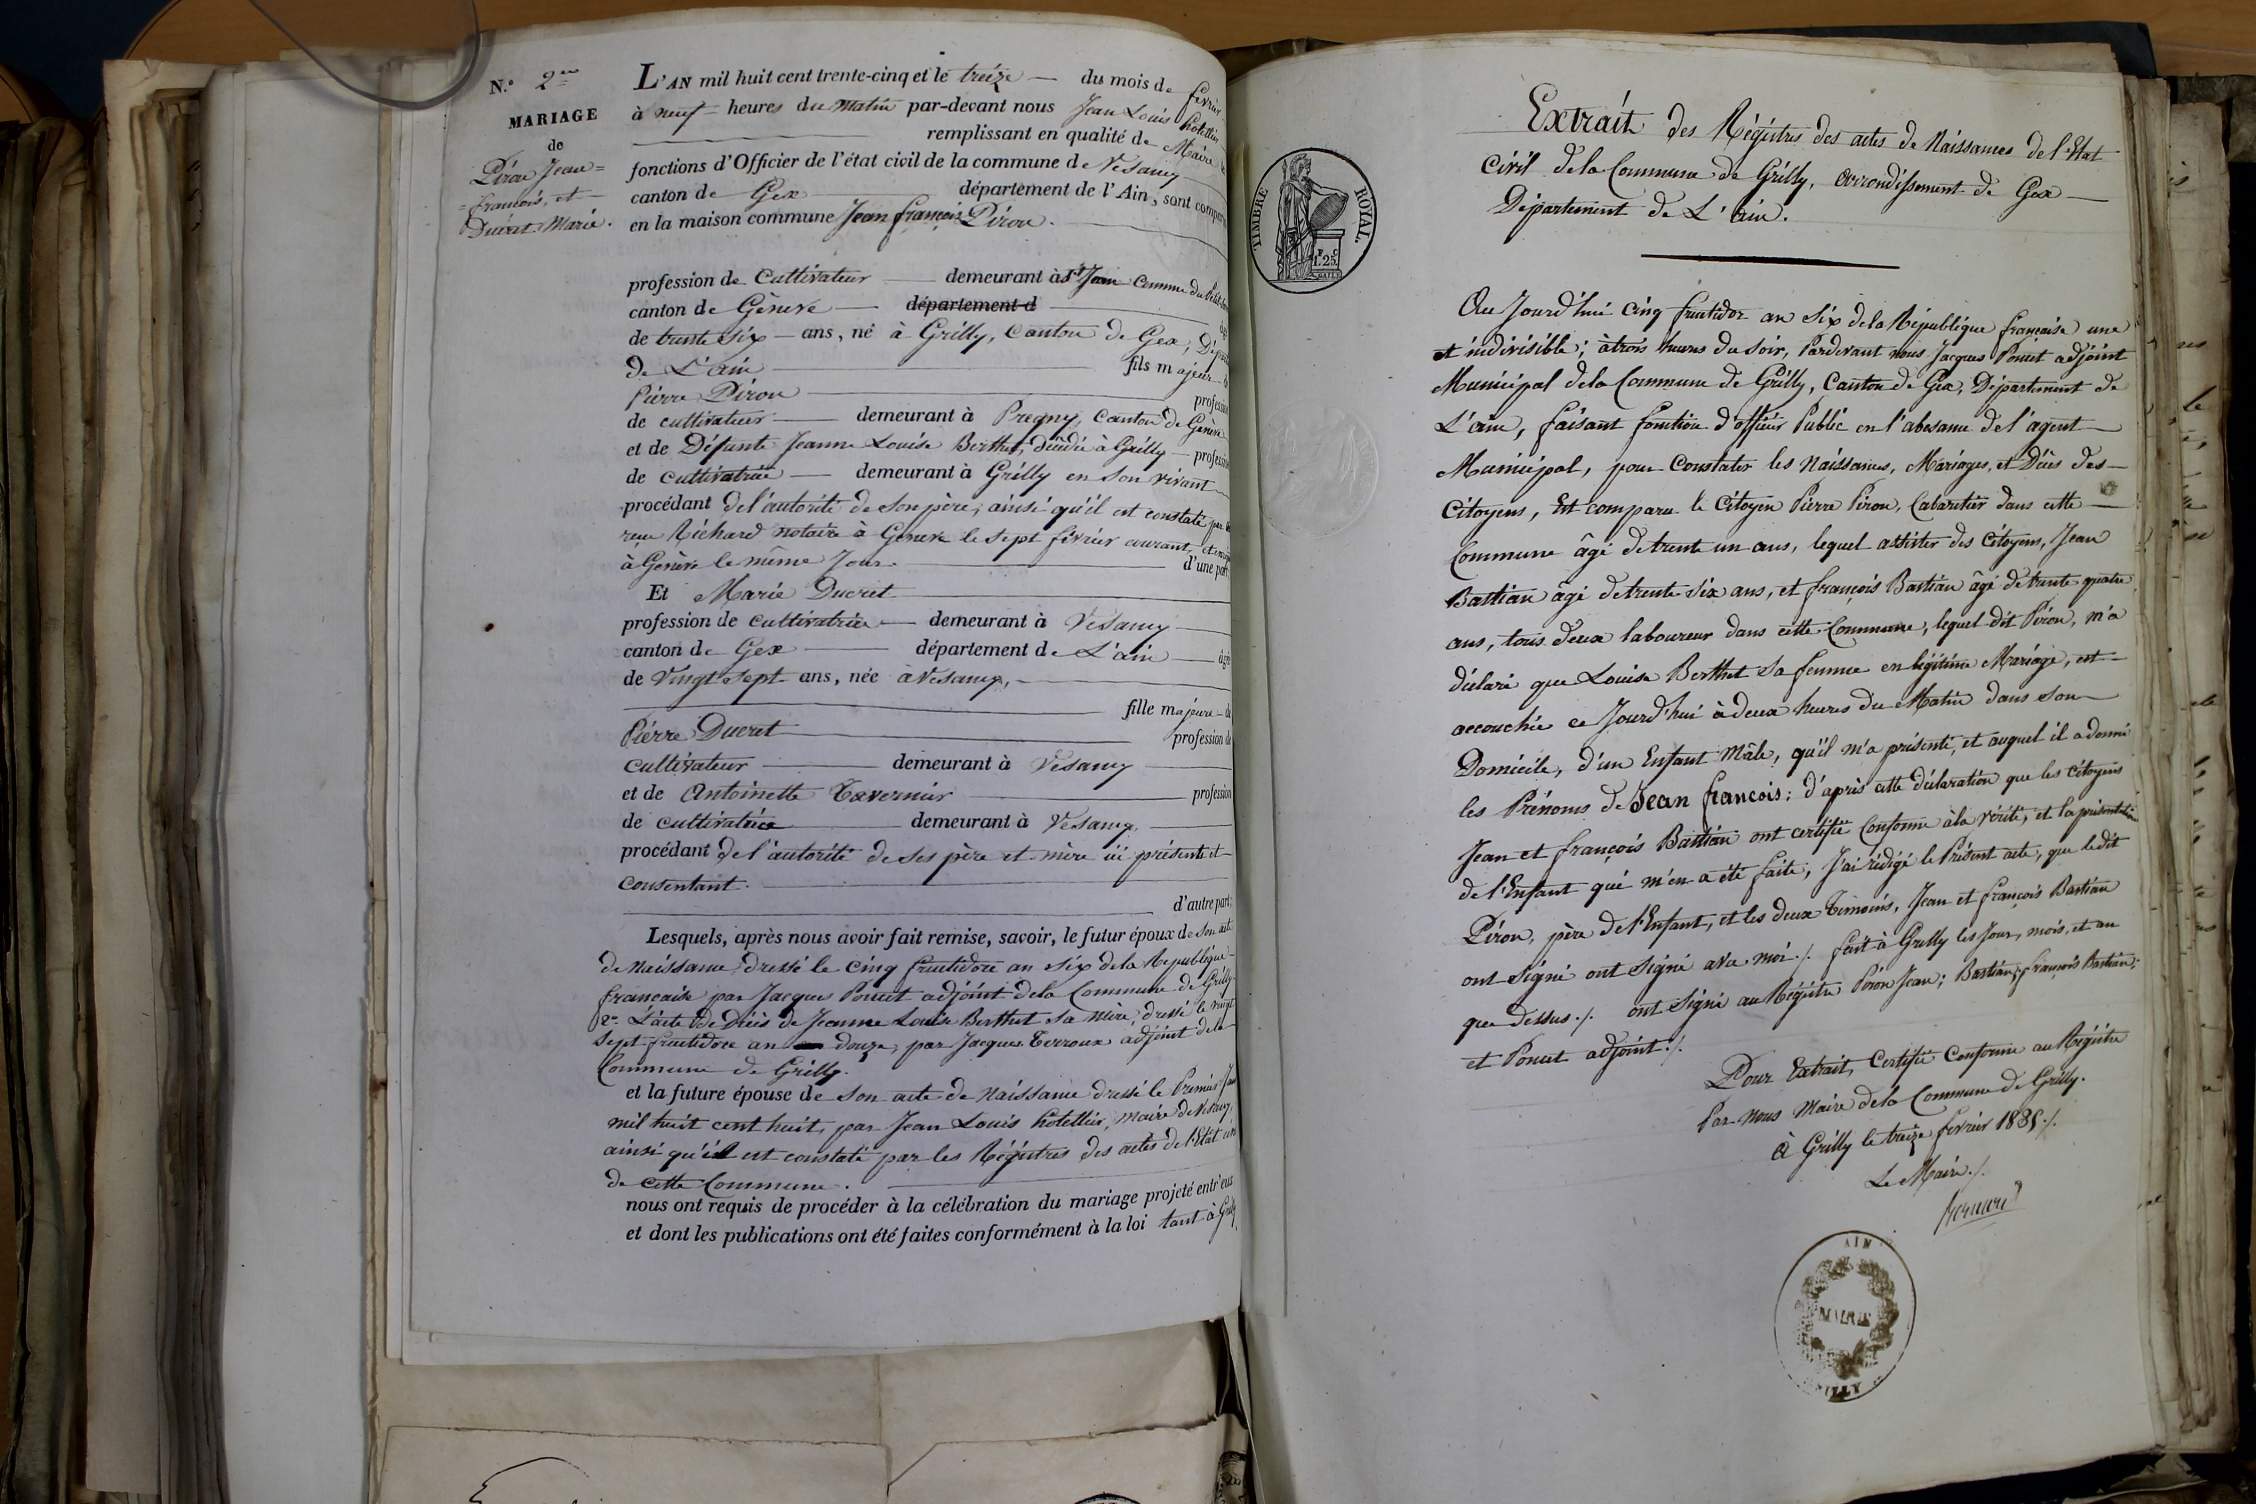 N.° 2.me
MARIAGE
de
Piron Jean=
=François, et
Ducret Marie.
L'AN mil huit cent trente-cinq et le treize — du mois de février
à neuf heures du matin par-devant nous Jean Louis hotellier
remplissant en qualité de Maire
fonctions d'Officier de l'état civil de la commune de Vesancy
canton de Gex département de l'Ain, sont compar
en la maison commune Jean françois Piron.
profession de Cultivateur demeurant à St Jean Commune du Petit
canton de Genève département d
de trente six ans, né à Grilly, canton de Gex, Dépar
de L'ain fils majeur
Pierre Piron profession
de cultivateur demeurant à Pregny, canton de Genève
et de Défunte Jeanne Louise Berthet, décédée à Grilly profession
de cultivatrice demeurant à Grilly en son vivant
procédant de l'autorité de son père, ainsi qu'il est constaté par
reçu Richard notaire à Genève le sept février courant,
à Genève le même Jour. d'une part
Et Marie Ducret
profession de cultivatrice demeurant à Vesancy
canton de Gex département de L'ain âgée
de Vingt sept ans, née à Vesancy,
fille majeure de
Pierre Ducret profession de
cultivateur demeurant à Vesancy
et de Antoinette Tavernier profession
de cultivatrice demeurant à Vesancy,
procédant de l'autorité de ses père et mère ici présents et
consentant.
d'autre part;
Lesquels, après nous avoir fait remise, savoir, le futur époux de son acte
de Naissance dressé le cinq fructidore an six de la République
française par Jacques Poncet adjoint de la Commune de Grilly
2.° L'acte de Décès de Jeanne Louise Berthet sa mère, dressé le vingt
sept fructidore an douze, par Jacques Terroux adjoint de la
Commune de Grilly.
et la future épouse de son acte de Naissance dressé le Premier
mil huit cent huit, par Jean Louis hotellier, maire de Vesancy,
ainsi qu'il est constaté par les Régistres des actes de l'Etat civil
de cette Commune.
nous ont requis de procéder à la célébration du mariage projeté entr'eux
et dont les publications ont été faites conformément à la loi tant à Grilly
TIMBRE ROYAL.
1.25
Extrait des Régistres des actes de Naissances de l'Etat
Civil de la Commune de Grilly, arrondissement de Gex
Département de L'ain.
Au Jourd'hui cinq fructidor an six de la République française une
et indivisible; à trois heures du soir, Pardevant nous Jacques Poncet adjoint
Municipal de la Commune de Grilly, Canton de Gex, Département de
L'ain, faisant fonction d'officier Public en l'absance de l'agent
Municipal, pour Constater les Naissances, Mariages, et Décès des
Citoyens, Est comparu le Citoyen Pierre Piron, Cabaretier dans cette
Commune âgé de trente un ans, lequel assister des Citoyens, Jean
Bastian âgé de trente six ans, et françois Bastian âgé de trente quatre
ans, tous deux laboureur dans cette Commune, lequel dit Piron, m'a
déclaré que Louise Berthet sa femme en légitime Mariage, est
accouchée ce Jourd'hui à deux heures du Matin dans son
Domicile, d'un Enfant Mâle, qu'il m'a présenté, et auquel il a donné
les Prénoms de Jean françois; d'après cette déclaration que les citoyens
Jean et françois Bastian ont certifié Conforme à la vérité, et la présentation
de l'Enfant qui m'en a été faite, J'ai rédigé le Présent acte, que le dit
Piron, père de l'Enfant, et les deux Témoins, Jean et françois Bastian
ont signé ont signé avec moi ./. fait à Grilly les Jour, mois, et an
que dessus ./. ont signé au Régistre Piron Jean; Bastian; françois Bastian;
et Poncet adjoint ./.
Pour Extrait, Certifié Conforme au Régistre
Par nous Maire de la Commune de Grilly.
à Grilly le treize février 1835 ./.
Le Maire ./.
AIN
MAIRIE